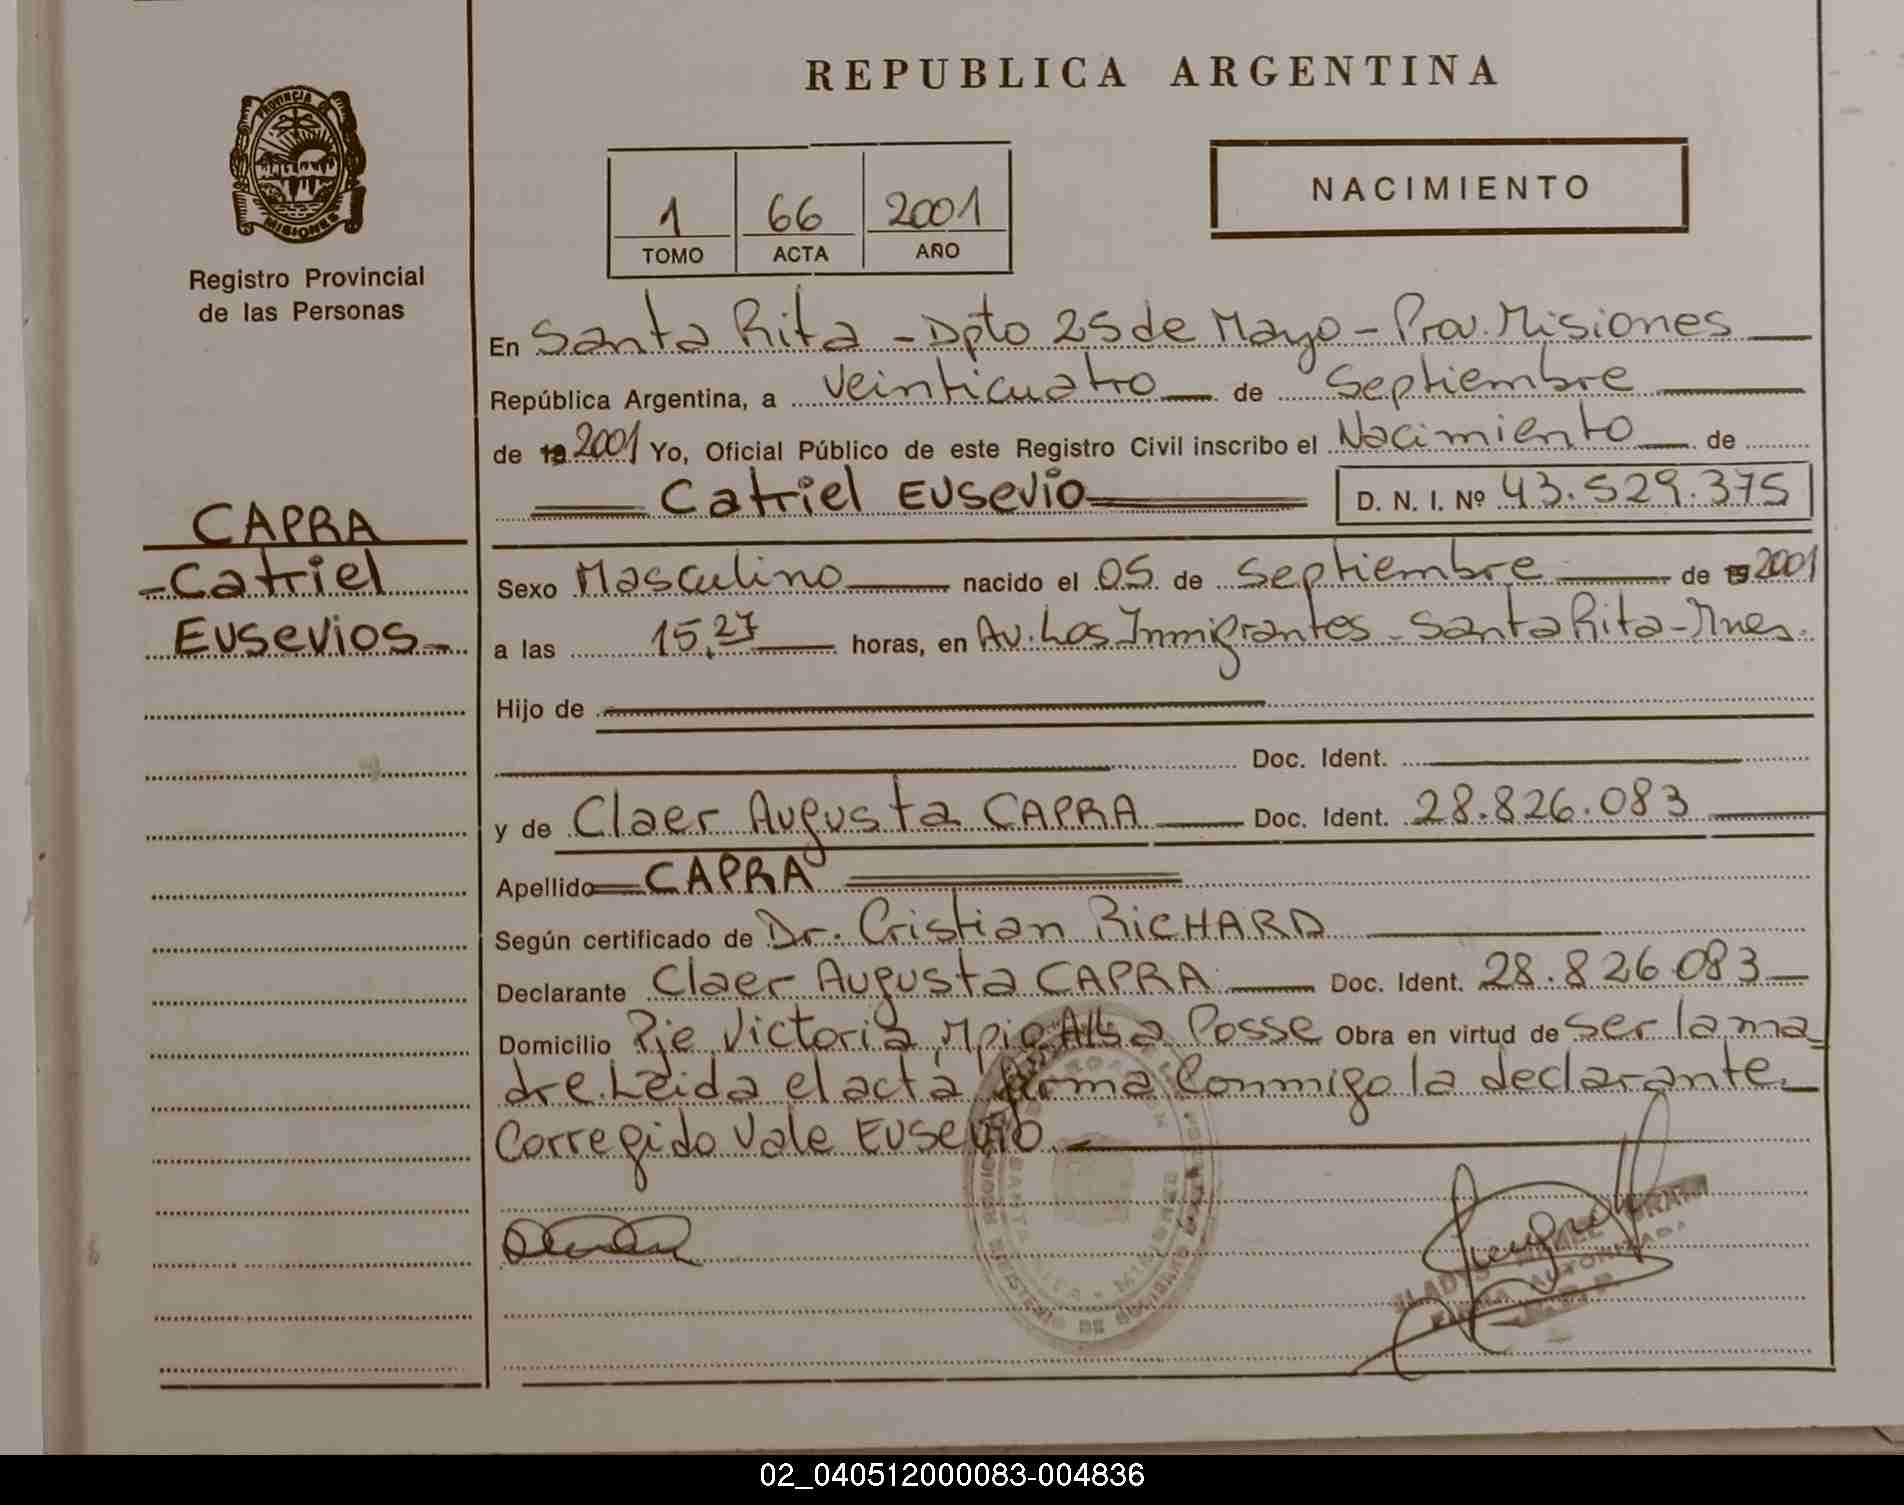 REPUBLICA ARGENTINA
PROVINCIA DE
MISIONES
Registro Provincial
de las Personas
1 66 2001
TOMO ACTA AÑO
NACIMIENTO
En Santa Rita - Dpto 25 de Mayo - Prov. Misiones
República Argentina, a Veinticuatro de Septiembre
de 19 2001 Yo, Oficial Público de este Registro Civil inscribo el Nacimiento de
Catriel Eusevio D. N. I. Nº 43.529.375
CAPRA
- Catriel
Eusevios -
Sexo Masculino nacido el 05 de Septiembre de 19 2001
a las 15,27 horas, en Av. Los Inmigrantes - Santa Rita - Mnes.
Hijo de
Doc. Ident.
y de Claer Augusta CAPRA Doc. Ident. 28.826.083
Apellido CAPRA
Según certificado de Dr. Cristian RICHARD
Declarante Claer Augusta CAPRA Doc. Ident. 28.826.083
Domicilio Pje Victoria, Mpio Alba Posse Obra en virtud de ser la ma
dre. Leida el acta, firma Conmigo la declarante.
Corregido Vale Eusevio
SANTA RITA
GLADYS
FIRMA AUTORIZADA
02_040512000083-004836